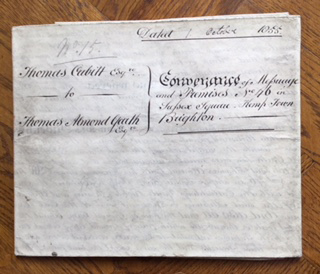 Dated 1 October 1855.
No. 15.
Thomas Cubitt Esqre.
to
Thomas Almond Esqre.
Conveyance of Messuage
and Premises No. 46 in
Sussex Square Kemp Town
Brighton